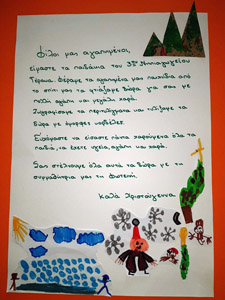 Φίλοι μας αγαπημένοι,
είμαστε τα παιδάκια του 38ου Νηπιαγωγείου
Πάτρας. Φέραμε τα αγαπημένα μας παιχνίδια από
το σπίτι μας τα φτιάξαμε δώρα για σας με
πολλή αγάπη και μεγάλη χαρά.
Ζωγραφίσαμε τα περιτυλίγματα και τυλίξαμε τα
δώρα με όμορφες κορδέλες.
Ευχόμαστε να είσαστε πάντα χαρούμενα όλα τα
παιδιά, να έχετε υγεία, αγάπη και χαρά.
Σας στέλνουμε όλα αυτά τα δώρα με τη
συμμαθήτρια μας τη Φωτεινή.
Καλά Χριστούγεννα